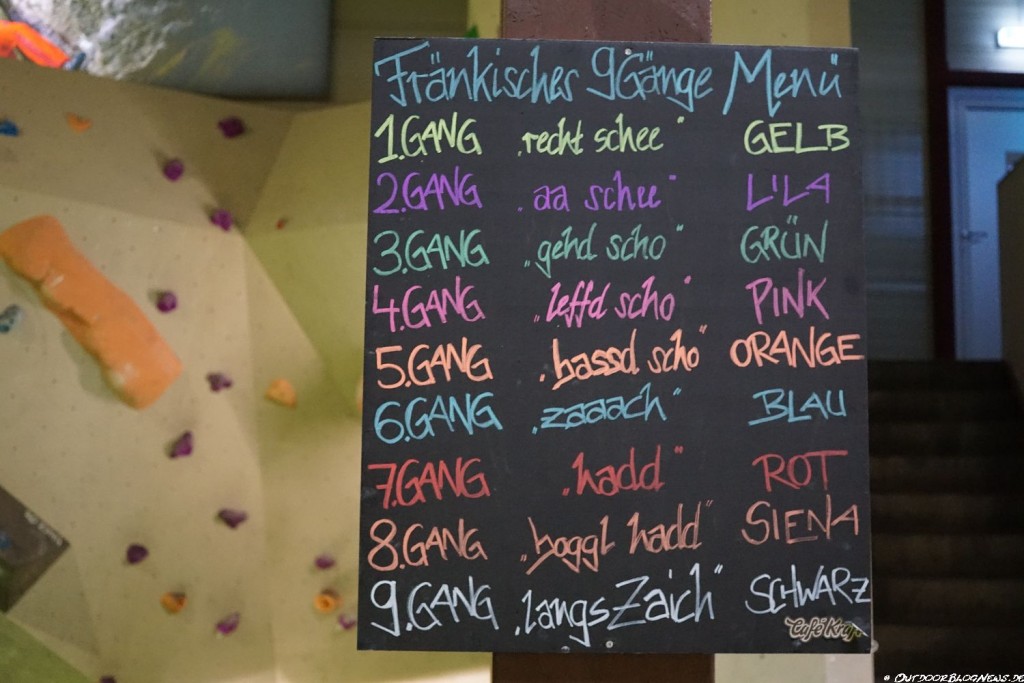 Fränkisches 9Gänge Menü
1.GANG „recht schee" GELB
2.GANG „aa schee" LILA
3.GANG „gehd scho" GRÜN
4.GANG „leffd scho" PINK
5.GANG „bassd scho" ORANGE
6.GANG „zaaach" BLAU
7.GANG „hadd" ROT
8.GANG „boggl hadd" SIENA
9.GANG „langsZaich" SCHWARZ
Café Kraft
© OUTDOORBLOGNEWS.DE